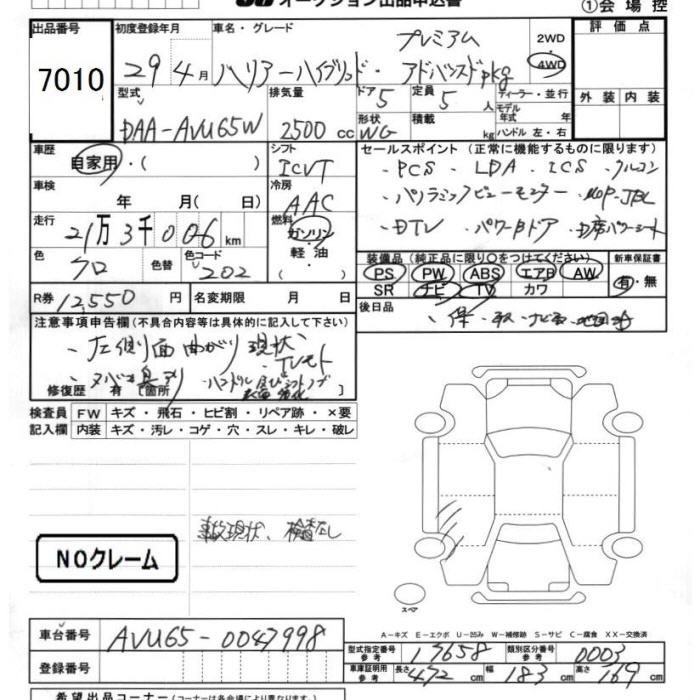 オークション出品申込書
①会場控
出品番号 初度登録年月 車名・グレード 評価点
プレミアム 2WD
7010 29年4月 ハリアーハイブリッド・アドバンスドpkg 4WD
型式 排気量 ドア5 定員5人 ディーラー・並行 外装 内装
モデル年式 年
DAA-AVU65W 2500cc 形状WG 積載 kg ハンドル 左・右
車歴 シフト セールスポイント(正常に機能するものに限ります)
自家用・( ) ICVT ・PCS ・LDA ・ICS ・クルコン
車検 冷房 ・パノラミックビューモニター ・MOP-JBL
年 月( 日) AAC ・DTV ・パワーBドア
走行 燃料
21万3千006km ガソリン・軽油・
色 色替 色コード 装備品(純正品に限り○をつけてください) 新車保証書
クロ 202 PS PW ABS エアB AW 有・無
SR ナビ TV カワ
R券 12,550円 名変期限 月 日 後日品
・保・取・ナビ取
注意事項申告欄(不具合内容等は具体的に記入して下さい)
・左側面曲がり現状、
・TVモト
・タバコ臭アリ
修復歴 有 [箇所
検査員 FW キズ・飛石・ヒビ割・リペア跡・×要
記入欄 内装 キズ・汚レ・コゲ・穴・スレ・キレ・破レ
事故現状、検査なし
NOクレーム
スペア
A-キズ E-エクボ U-凹み W-補修跡 S-サビ C-腐食 XX-交換済
車台番号 AVU65-0047998 型式指定番号 参考 17658 類別区分番号 参考 0003
登録番号 車庫証明用 参考 長さ472cm 幅183cm 高さ169cm
希望出品コーナー(コーナー名は各会場により異なります。)